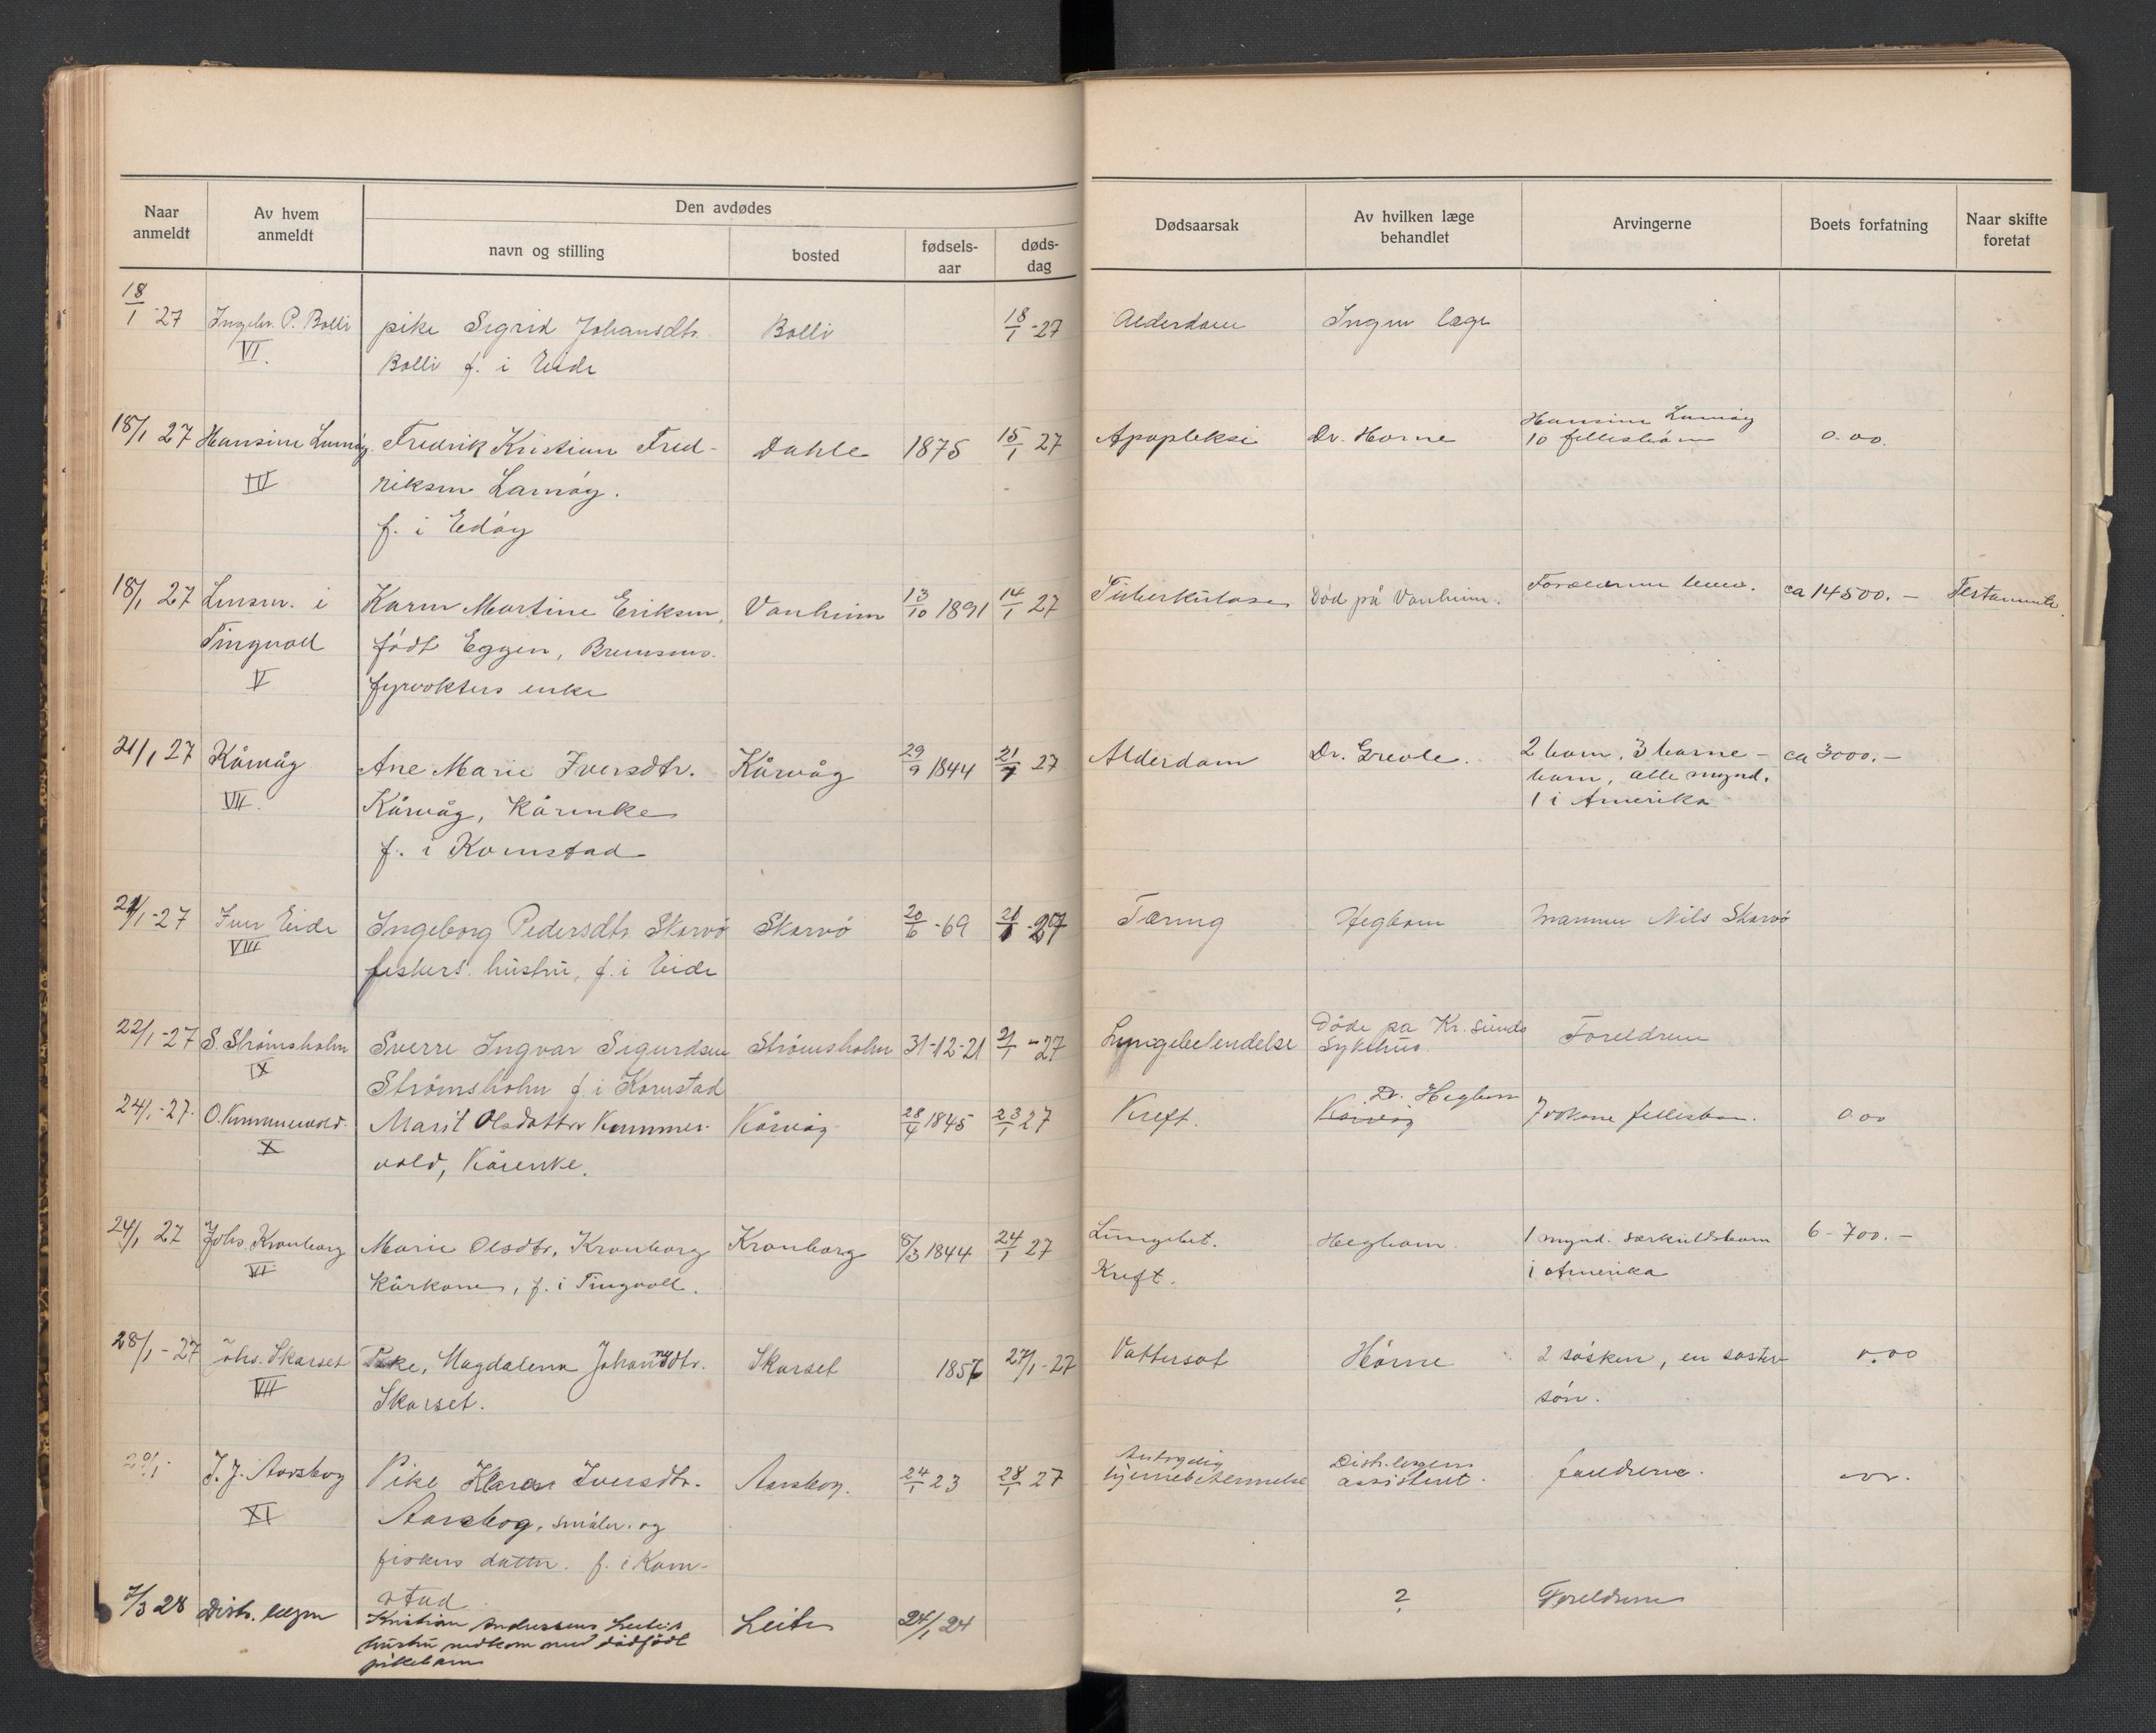 Naar anmeldt
Av hvem anmeldt
Den avdødes
navn og stilling
bosted
fødsels-aar
døds-dag
Dødsaarsak
Av hvilken læge behandlet
Arvingerne
Boets forfatning
Naar skifte foretat
18/1-27 Ingebr. P. Bolli pike Sigrid Johansdtr. Bolli 18/1-27 Alderdom Ingen læge
VI. Bolli f. i Eide
18/1 27 Hansine Lamøy Fredrik Kristian Fred- Dahle 1875 15/1 27 Apopleksi Dr. Horne Hansine Lamøy
10 fellesbørn 0.00.
III riksen Lamøy.
f. i Edøy
18/1 27 Lensm. i Karen Martine Eriksen, Vonheim 13/10 1891 14/1 27 Tuberkulose Død på Vonheim. Foreldrene lever. ca 14500.- Testamente.
Tingvoll født Eggen, Bremsnes.
V fyrvokters enke
21/1 27 Kårvåg Ane Marie Iversdtr. Kårvåg 29/9 1844 21/1 27 Alderdom Dr. Grevle. 2 barn, 3 barne- ca 3000.-
VII. Kårvåg, Kårenke barn, alle mynd.
f. i Kornstad 1 i Amerika
21/1-27 Iver Eide Ingeborg Pedersdtr Skarvø Skarvø 20/6-69 21/1-27 Tæring Hegbom mannen Nils Skarvø
VIII fiskers hustru, f. i Eide
22/1-27 S. Strømsholm Sverre Ingvar Sigurdsen Strømsholm 31-12-21 21/1-27 Lungebetendelse Døde på Kr.sunds Foreldrene
IX Strømsholm f. i Kornstad sykehus.
24/1-27. O. Kummervold. Marit Olsdatter Kummer- Kårvåg 28/4 1845 23/1 27 Kreft. Kårvåg Dr. Hegbom 7 voksne fellesbarn. 0.00
X vold, Kårenke.
24/1 27 Johs. Kronborg Marie Olsdtr. Kronborg Kronborg 6/3 1844 24/1 27 Lungebet. Hegbom. 1 mynd. særkuldsbarn 6-700.-
VI Kårkone, f. i Tingvoll. Kreft. i Amerika
28/1-27 Johs. Skarset Pike, Magdalena Johannesdtr. Skarset 1857 27/1-27 Vattersot Horne 2 søsken, en søster- 0.00
VII Skarset. søn.
29/1 J. J. Aarsbog Pike Klara Iversdtr. Aarsbog. 24/1 23 28/1 27 hjernebetennelse Distr.legens assistent. foreldrene. 0.00.
XI Aarsbog, småbr. og
fiskers datter. f. i Korn-
stad
7/3 28 Distr. legen Kristian Andreassens Leites Leite 24/1 24 ? Foreldrene
hustru nedkom med dødfødt
pikebarn